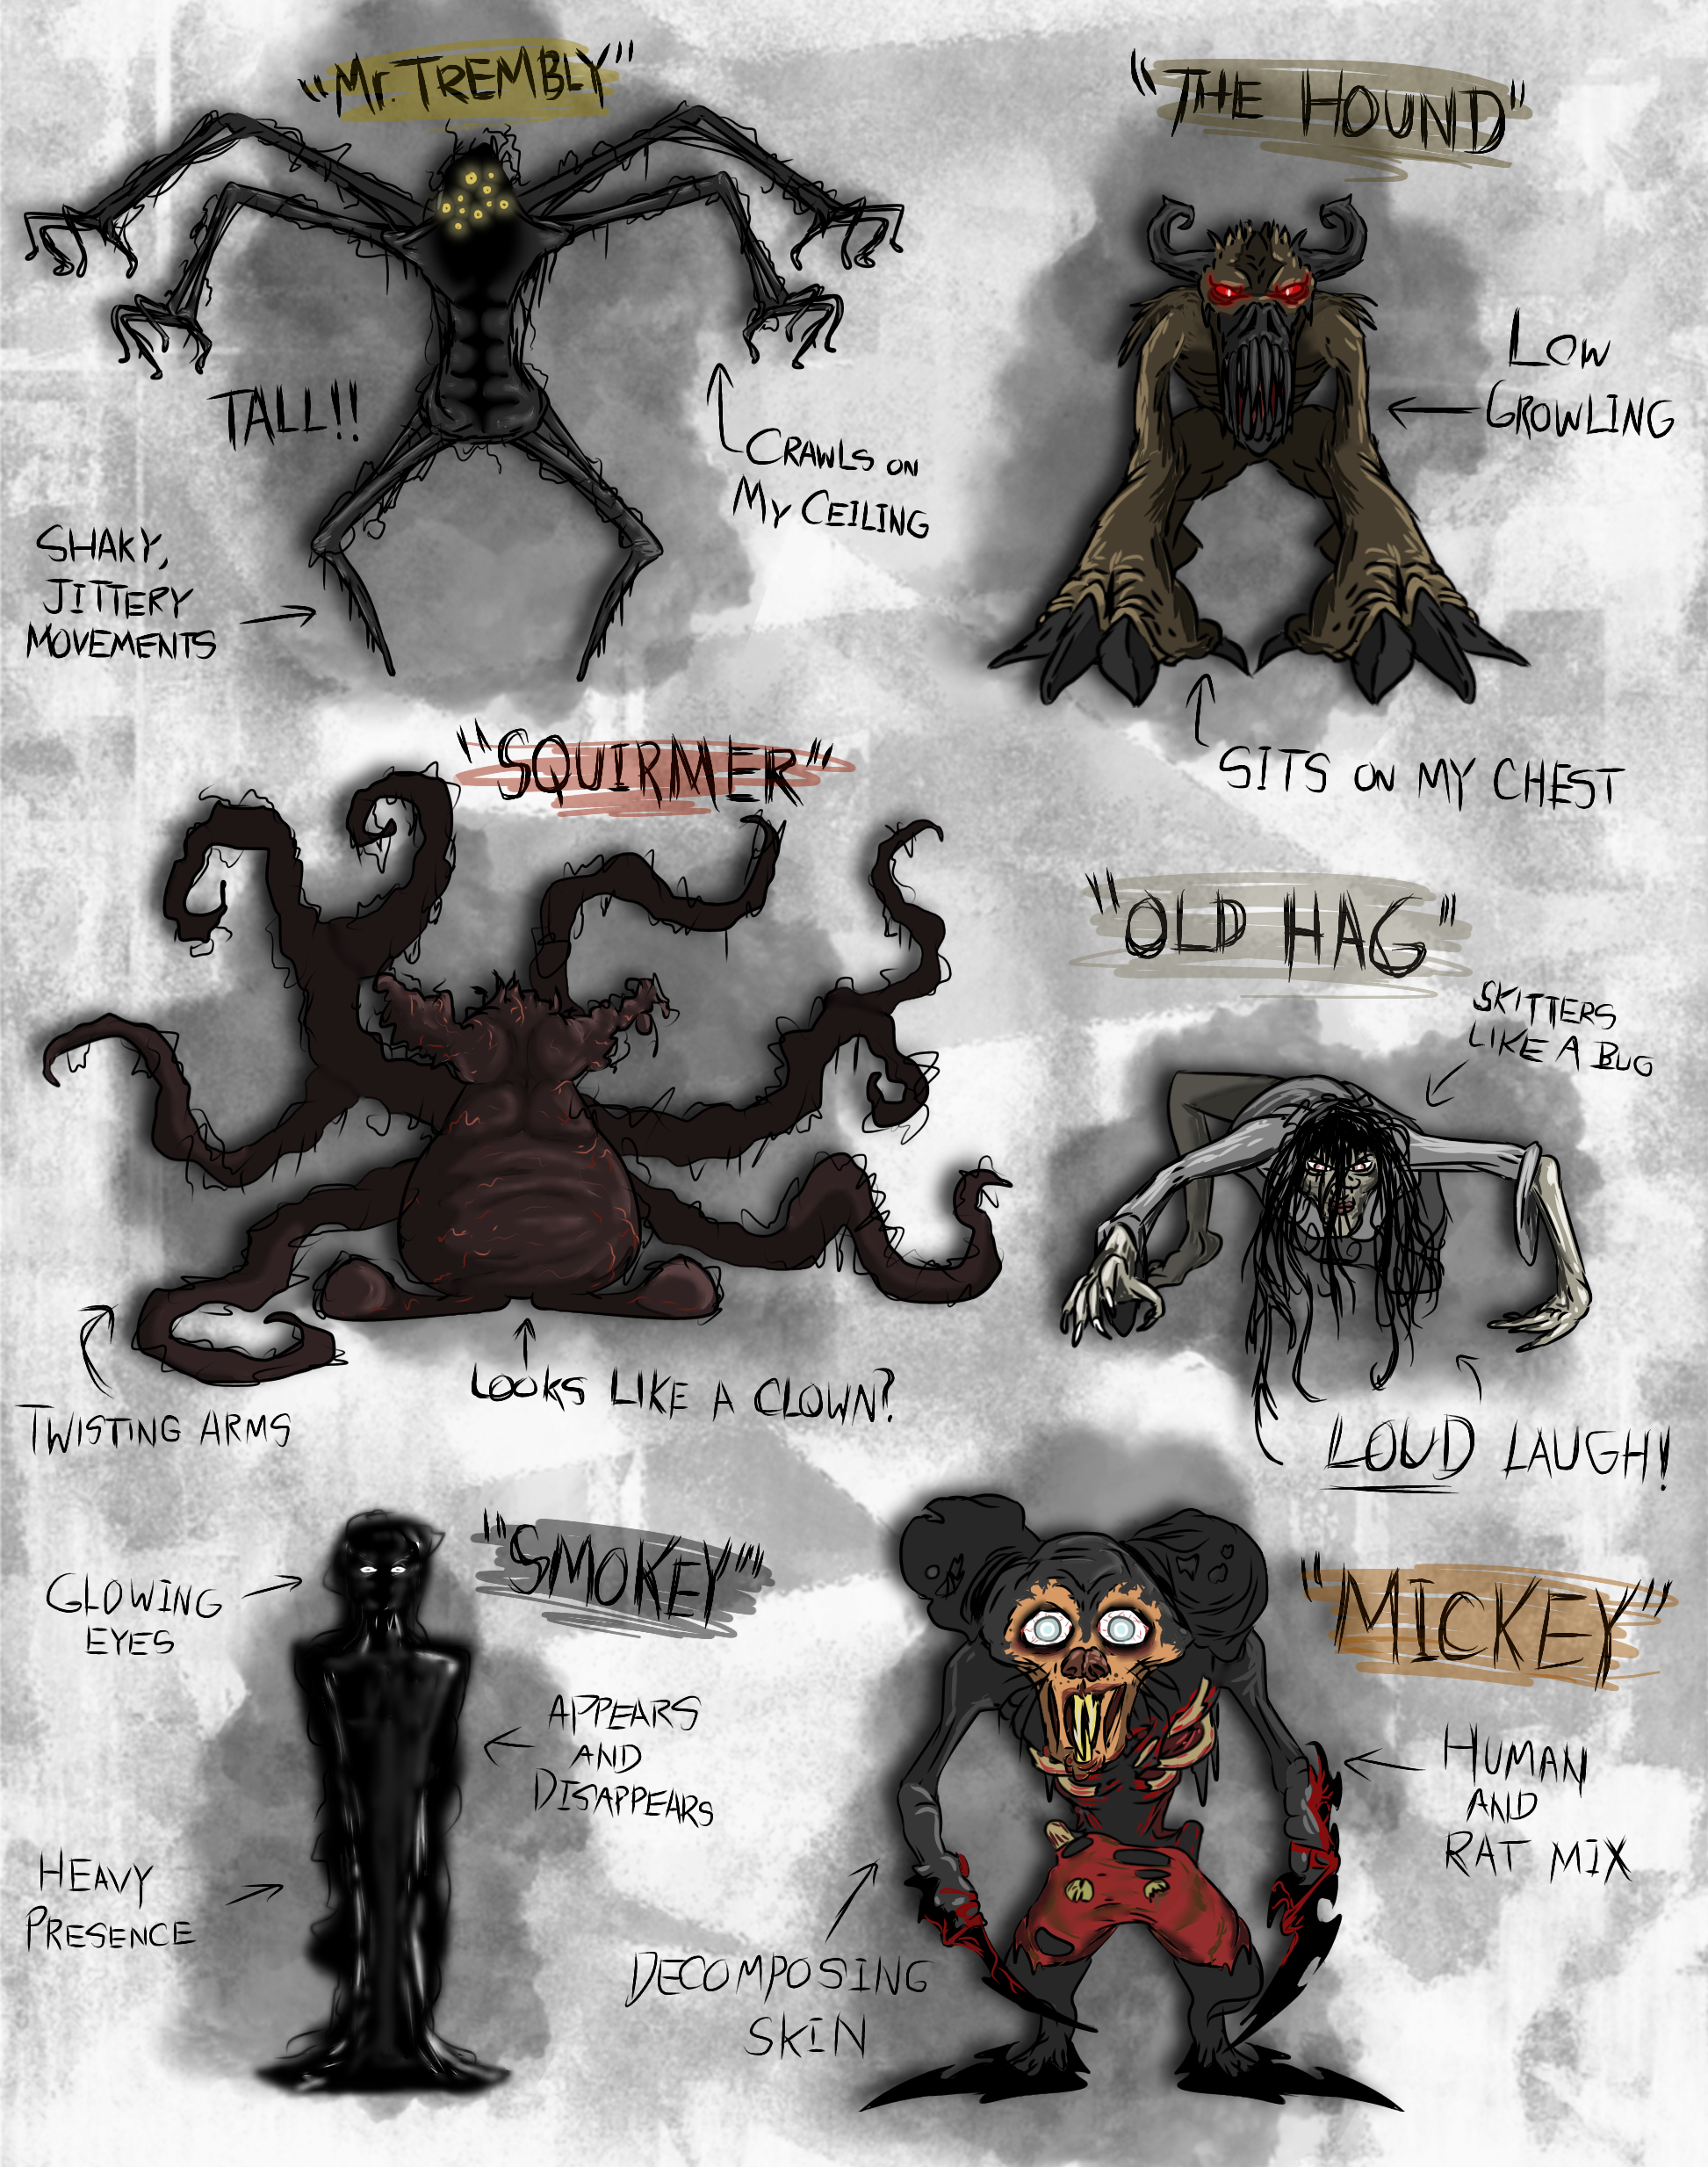 "Mr. TREMBLY"
TALL!!
CRAWLS ON
MY CEILING
SHAKY,
JITTERY
MOVEMENTS
"THE HOUND"
LOW
GROWLING
SITS ON MY CHEST
"SQUIRMER"
TWISTING ARMS
LOOKS LIKE A CLOWN?
"OLD HAG"
SKITTERS
LIKE A BUG
LOUD LAUGH!
"SMOKEY"
GLOWING
EYES
APPEARS
AND
DISAPPEARS
HEAVY
PRESENCE
"MICKEY"
HUMAN
AND
RAT MIX
DECOMPOSING
SKIN